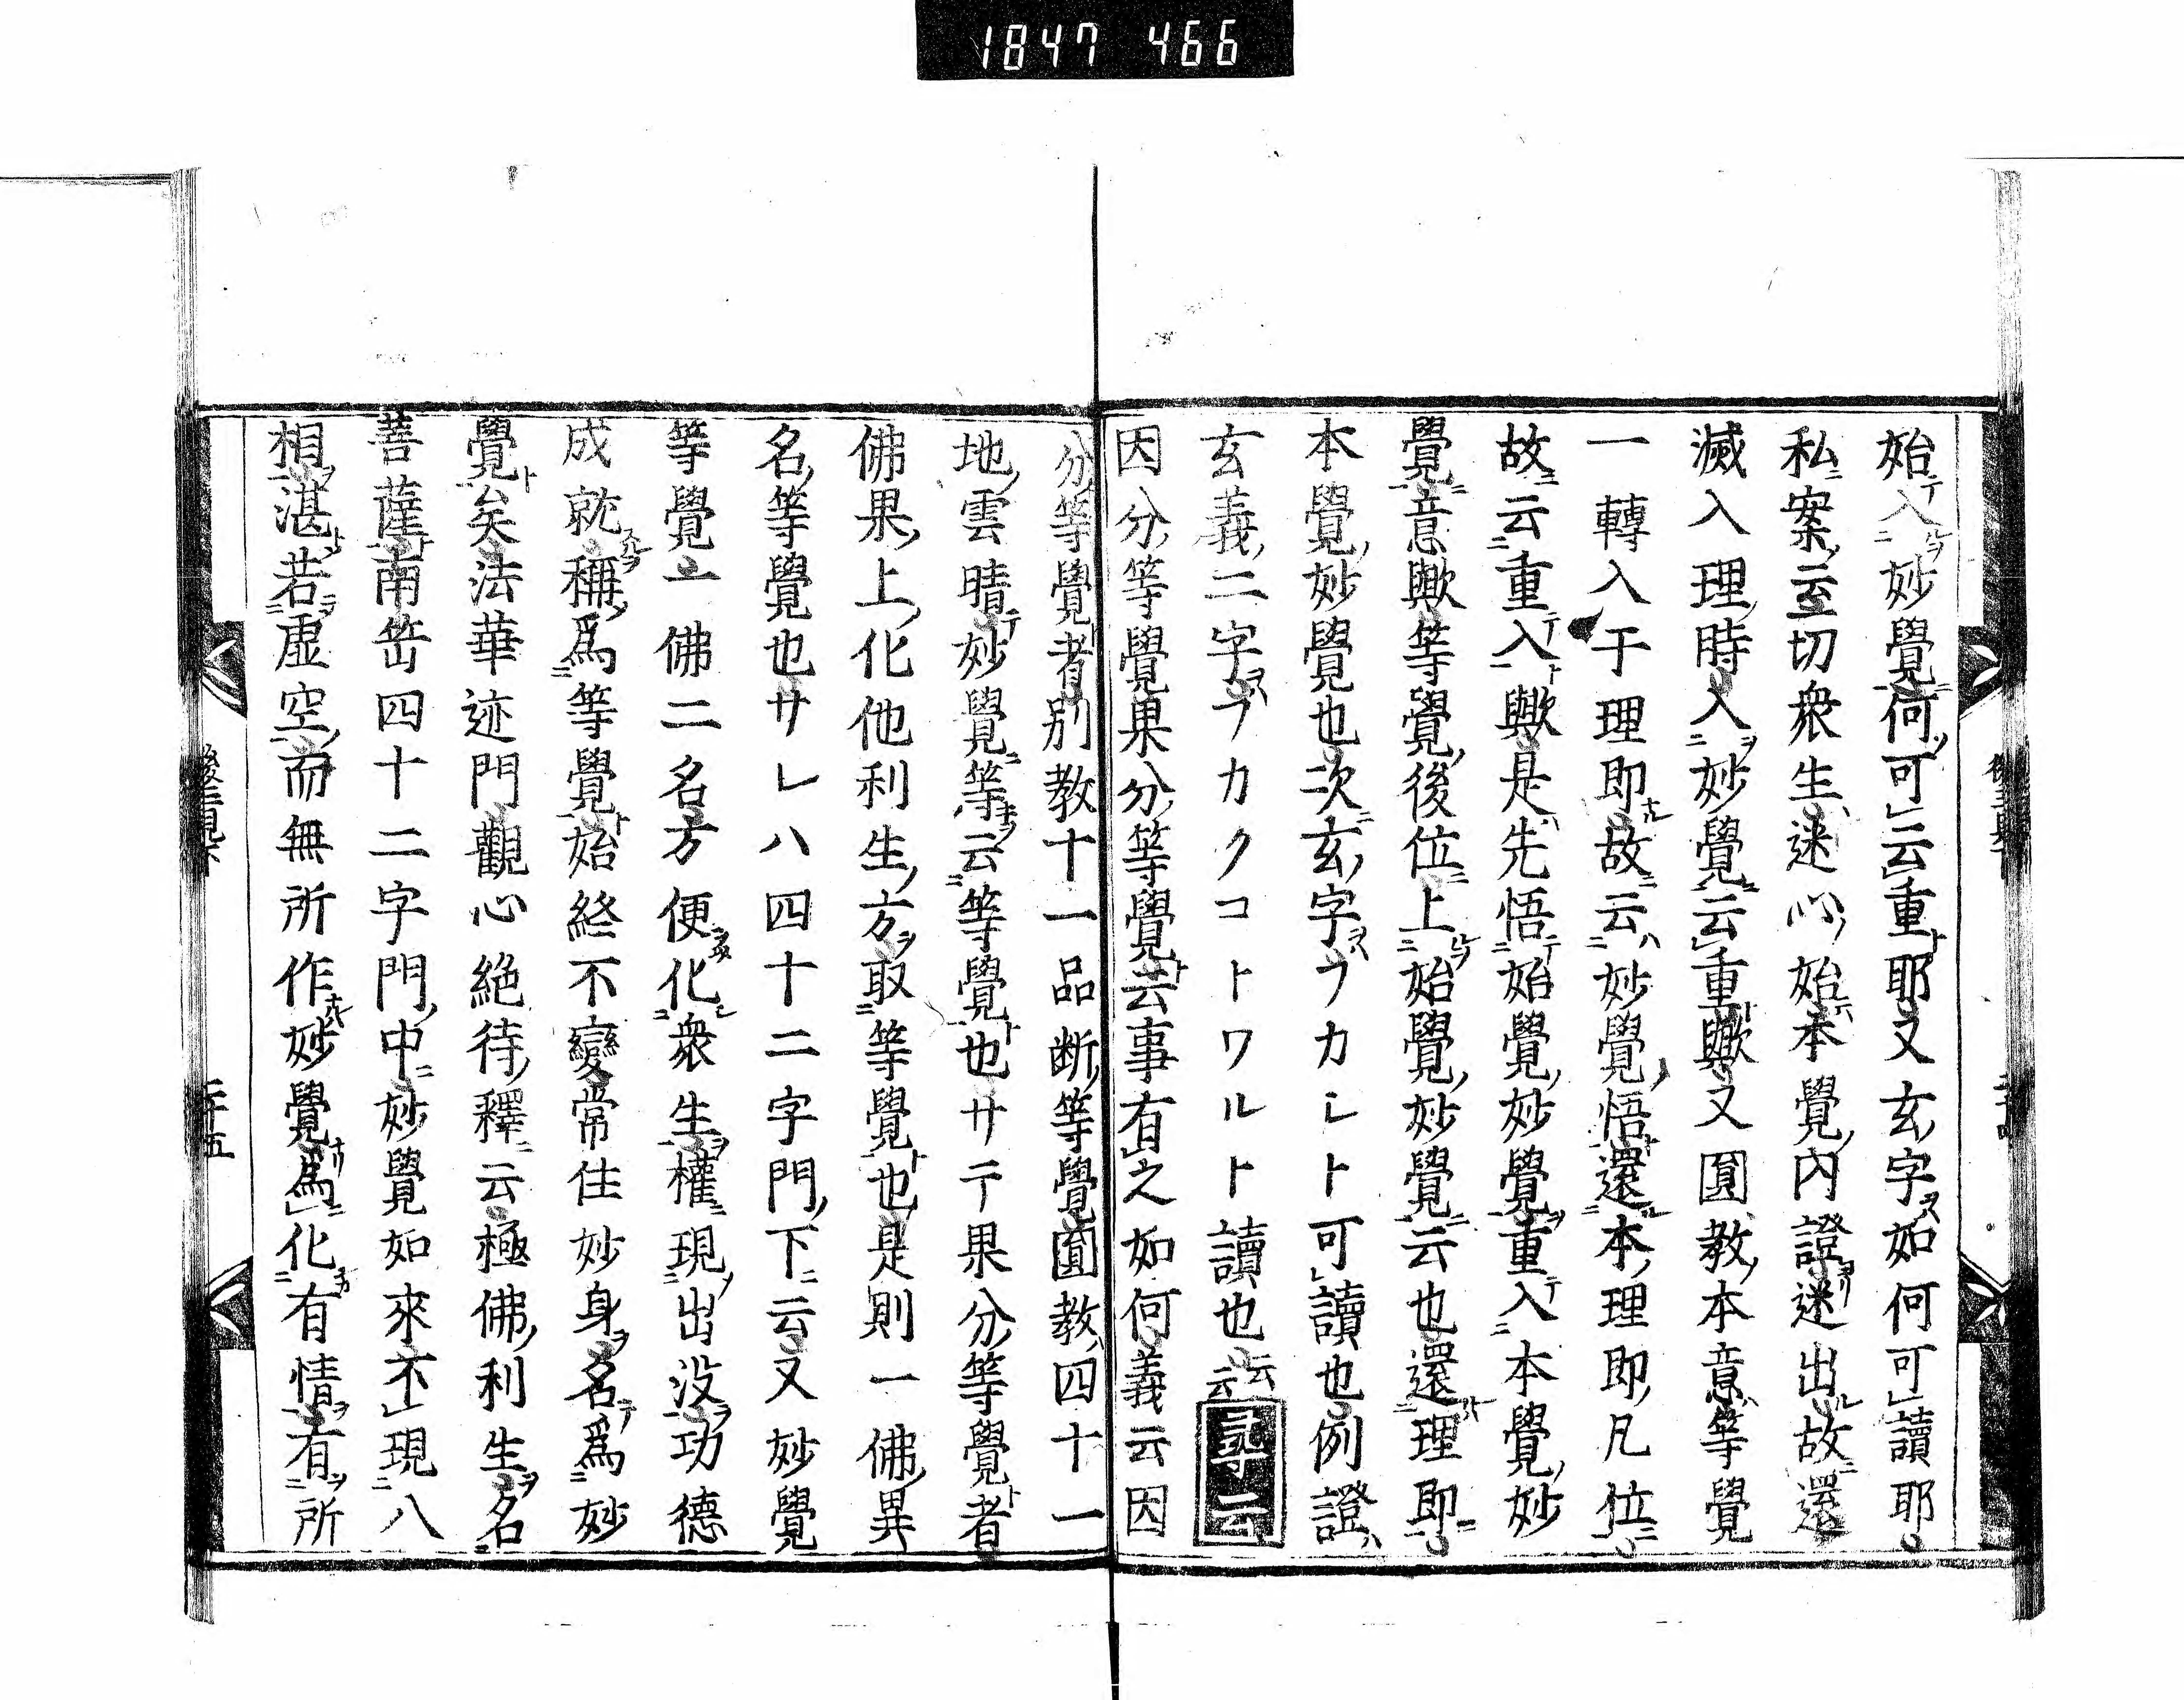 1847 466
始入妙覺何可云重耶又玄字如何可讀耶
私案云至切衆生迷心始本覺內證迷出故還
滅入理時入妙覺云重歟又圓教本意等覺
一轉入于理即故云妙覺悟還本理即凡位
故云重入歟是先悟始覺妙覺重入本覺妙
覺意歟等覺後位上始覺妙覺云也還理即
本覺妙覺也次玄字フカシト可讀也例證
玄義二字フカクコトワルト讀也云云 尋云
因分等覺果分等覺云事有之如何義云因
分等覺者別教十一品断等覺圓教四十一
地雲晴妙覺等云等覺也サテ果分等覺者
佛果上化他利生方取等覺也是則一佛異
名等覺也サレハ四十二字門下云又妙覺
等覺一佛二名方便化衆生權現出没功德
成就稱爲等覺始終不變常住妙身名爲妙
覺矣法華迹門觀心絶待釋云極佛利生名
菩薩南岳四十二字門中妙覺如來不現八
相湛若虛空而無所作妙覺爲化有情有所
二十五